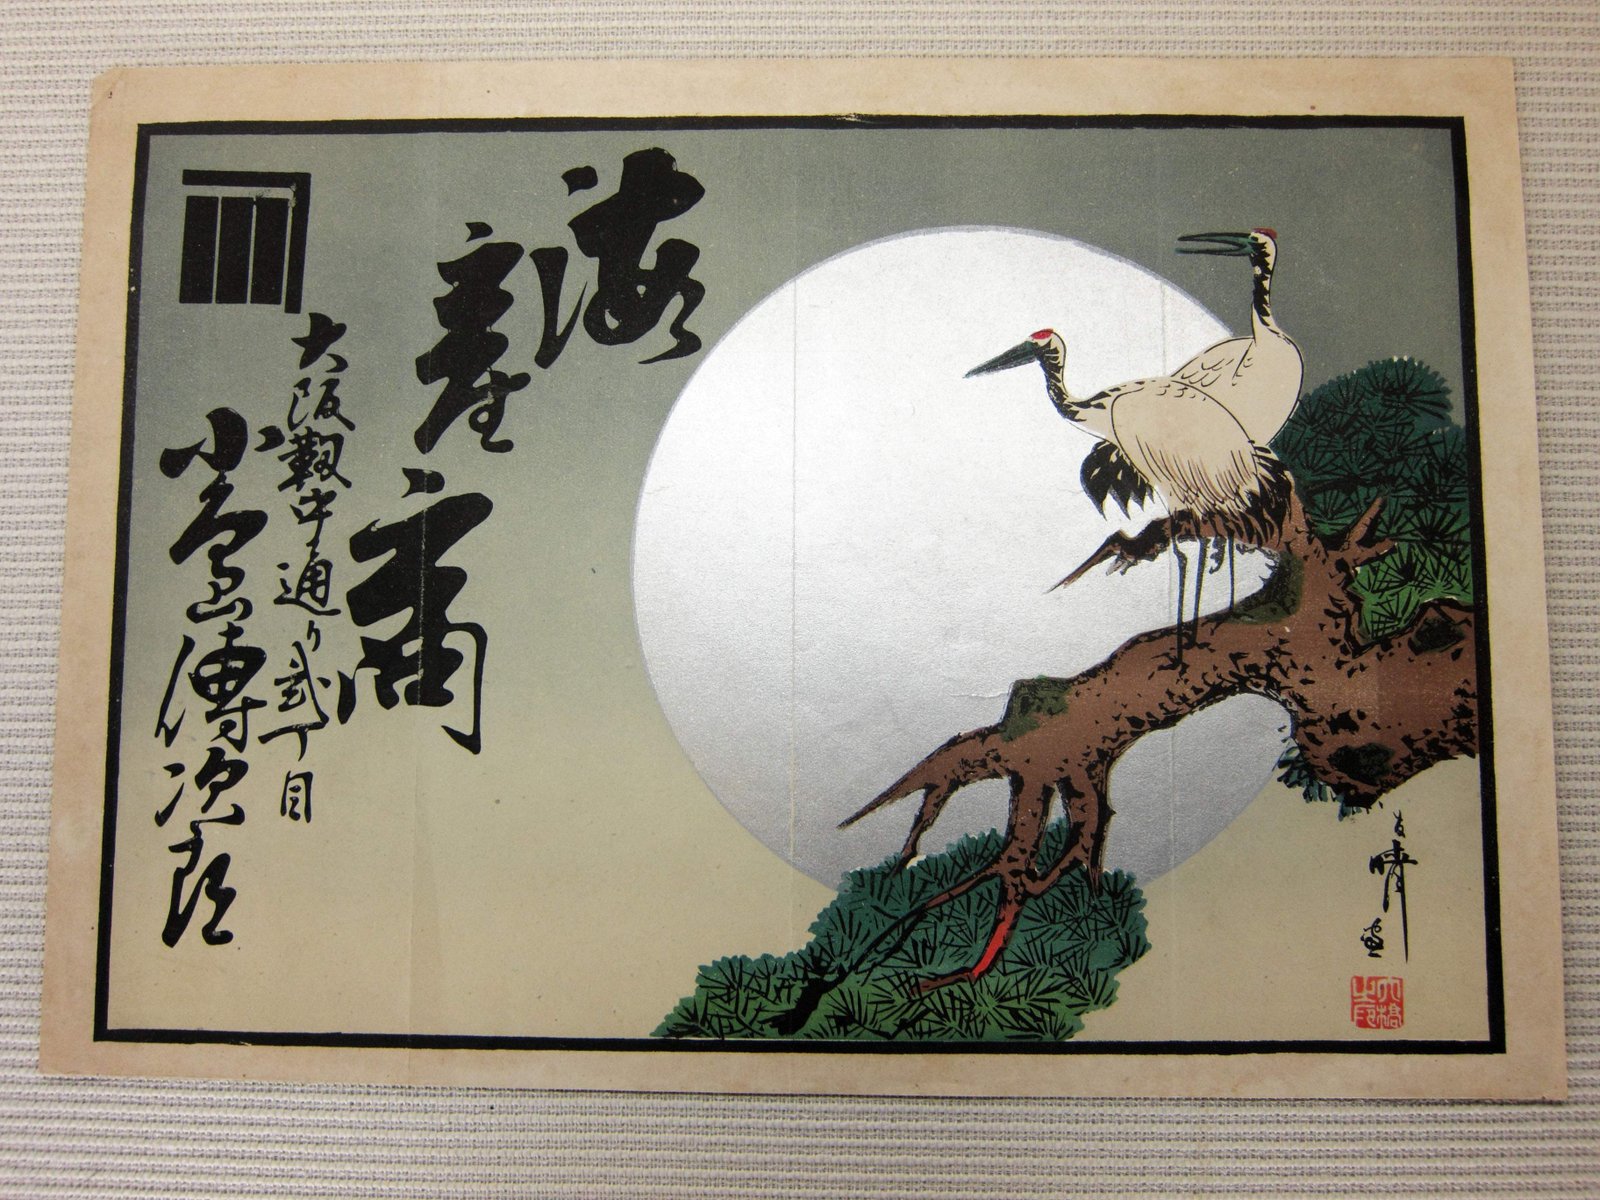 海産商
大阪靱中通り弐丁目
小島傳次郎